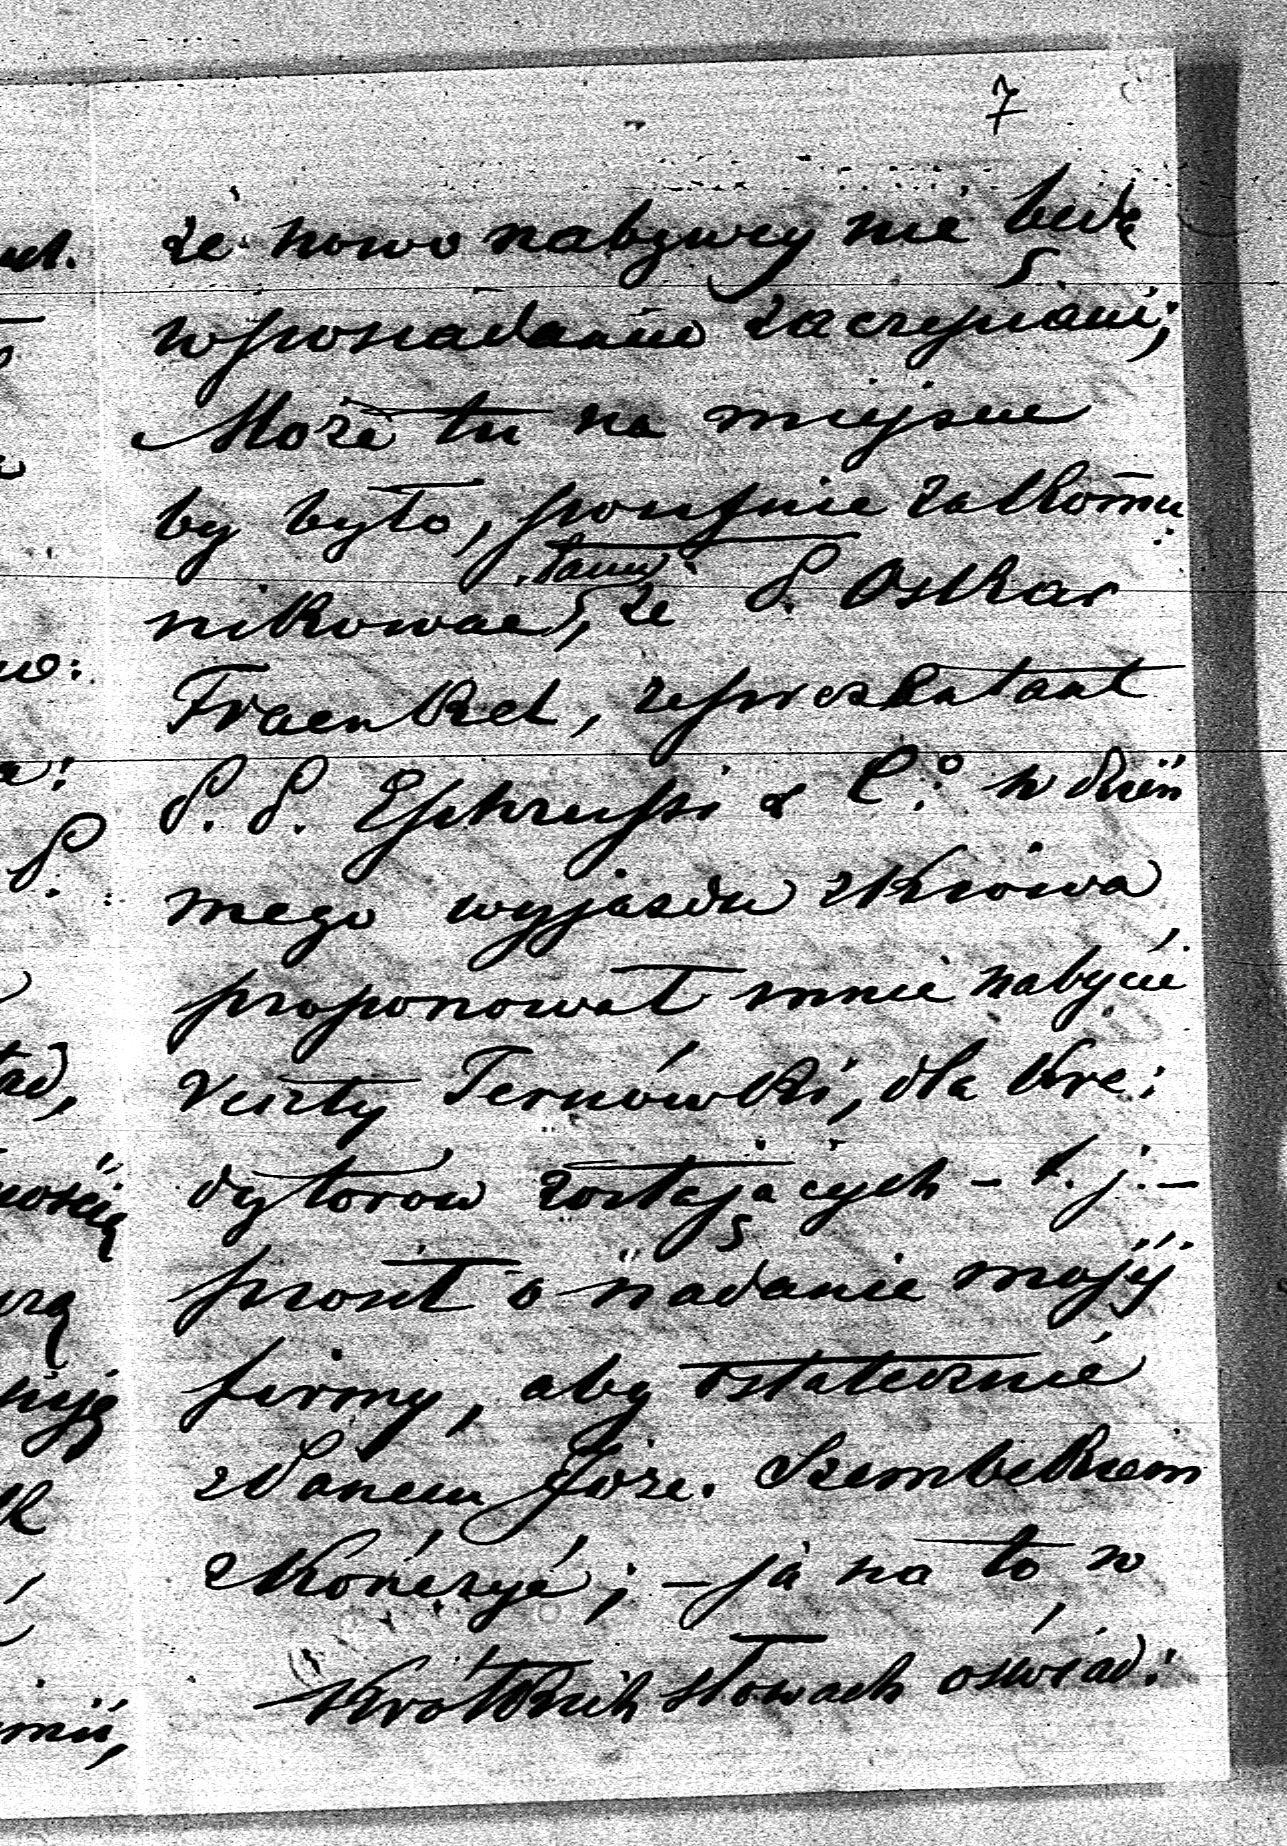 7
że nowo nabywcy nie będą
w posiadaniu zaczepiani;
Może tu na miejscu
by było, poufnie zakomu:
nikować Panu, że P. Oskar
Fraenkel, reprezentant
P. P. Ephrussi & Co. w dzień
mego wyjazdu z Kiowa
proponował mnie nabycie
reszty Ternówki, dla kre:
dytorów zostających – t. j. –
prosił o nadanie mojéj
firmy, aby ostatecznie
z Panem Józe. Szembekiem
skończyć; – ja na to w
krótkich słowach oświad: